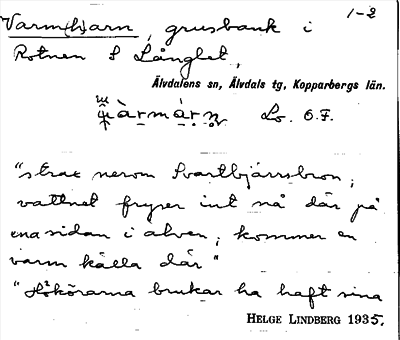 1-2
Varm(h)arn, grusbank i
Rotnen S Långlet,
Älvdalens sn, Älvdals tg, Kopparbergs län.
Lo. O.F.
"strax nerom Svartbjärrsbron;
vattnet fryser int nå där på
ena sidan i älven; kommer en
varm källa där"
"Hökörarna brukar ha haft sina
HELGE LINDBERG 1935.